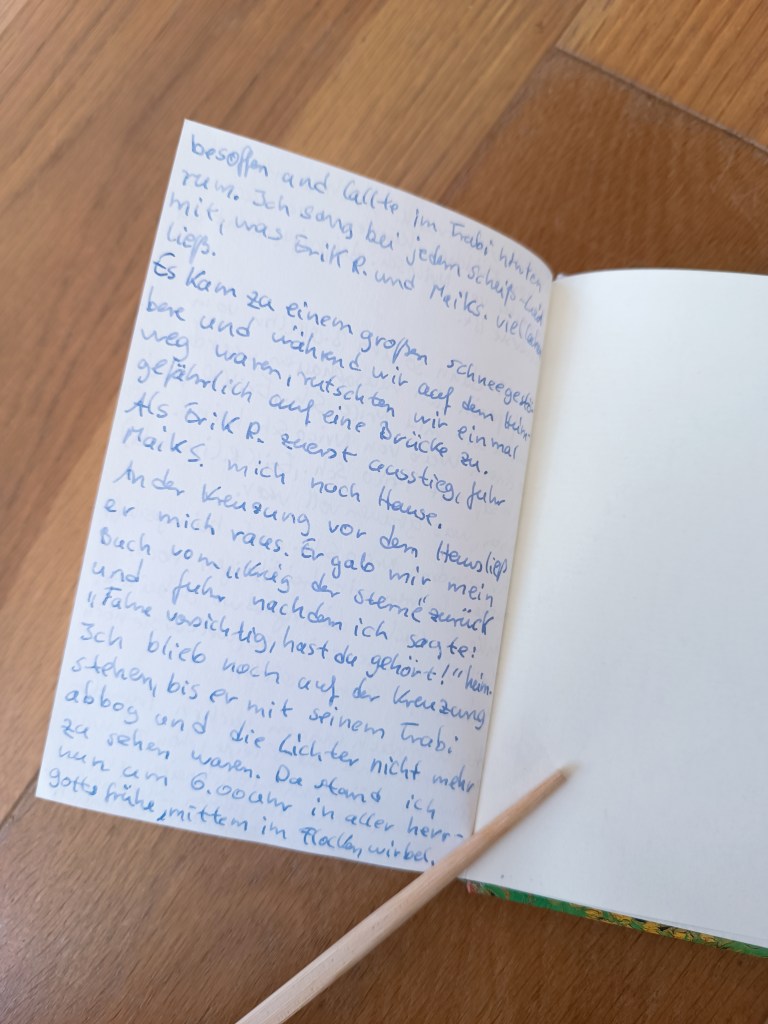 besoffen und lallte im Trabi hinten
rum. Ich sang bei jedem scheiß-Lied
mit, was Erik R. und Maik S. viel lachen
ließ.
Es kam zu einem großen schneegestö-
bere und während wir auf dem Heim-
weg waren, rutschten wir einmal
gefährlich auf eine Brücke zu.
Als Erik R. zuerst ausstieg, fuhr
Maik S. mich nach Hause.
An der Kreuzung vor dem Haus ließ
er mich raus. Er gab mir mein
Buch vom „Krieg der Sterne" zurück
und fuhr nachdem ich sagte:
„Fahre vorsichtig, hast du gehört!" heim.
Ich blieb noch auf der Kreuzung
stehen, bis er mit seinem Trabi
abbog und die Lichter nicht mehr
zu sehen waren. Da stand ich
nun um 6.00 Uhr in aller herr-
gotts frühe, mittem im Flockenwirbel.